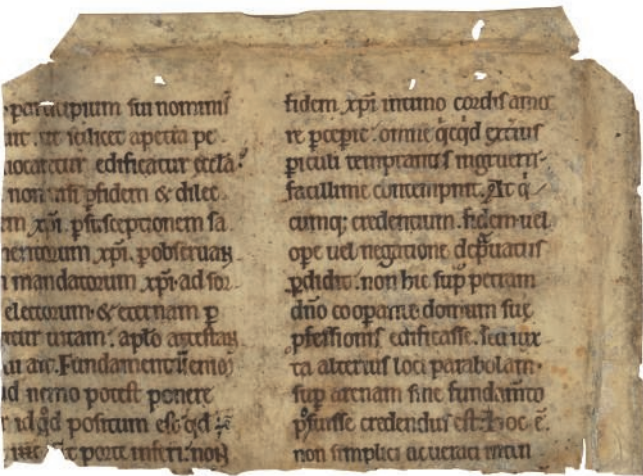 participium sui nominis
ut scilicet a petra pe
vocaretur edificatur eccla.
non nisi p fidem & dilec
em xp̄i. p susceptionem sa
mentorum xp̄i. p obseruan
mandatorum xp̄i. ad sor
electorum. & eternam p
uitam. ap̄lo attestan
ait. Fundamentū enī
nemo potest ponere
id qd positum est. qd
porte inferi. non
fidem xp̄i intimo cordis amo
re p̄cep̄it. omne q̄cq̄d ext̄ius
p̄iculi temptantis ingruerit.
facillime contempnit. At q̄
cumq; credentium. fidem uel
ope uel negatione dep̄uatus
p̄didit. non hic sup̄ petram
dn̄o coop̄ante domum suę
p̄fessionis edificasse. sed iux
ta alterius loci parabolam.
sup arenam sine fundam̄to
posuisse credendus est. Hoc ē.
non simplici ac ueraci